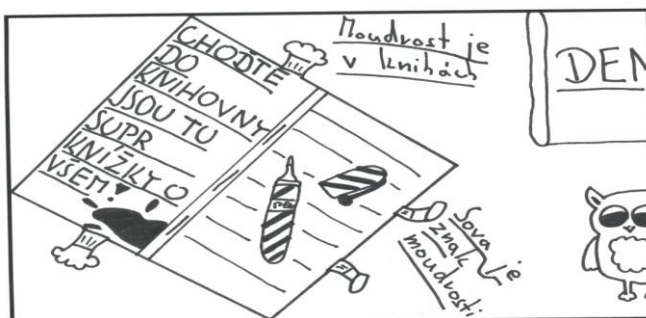 CHOĎTĚ
DO
KNIHOVNY
JSOU TU
SUPR
KNÍŽKY O
VŠEM!
Moudrost je
v knihách
DEN
Sova je
znak
moudrosti